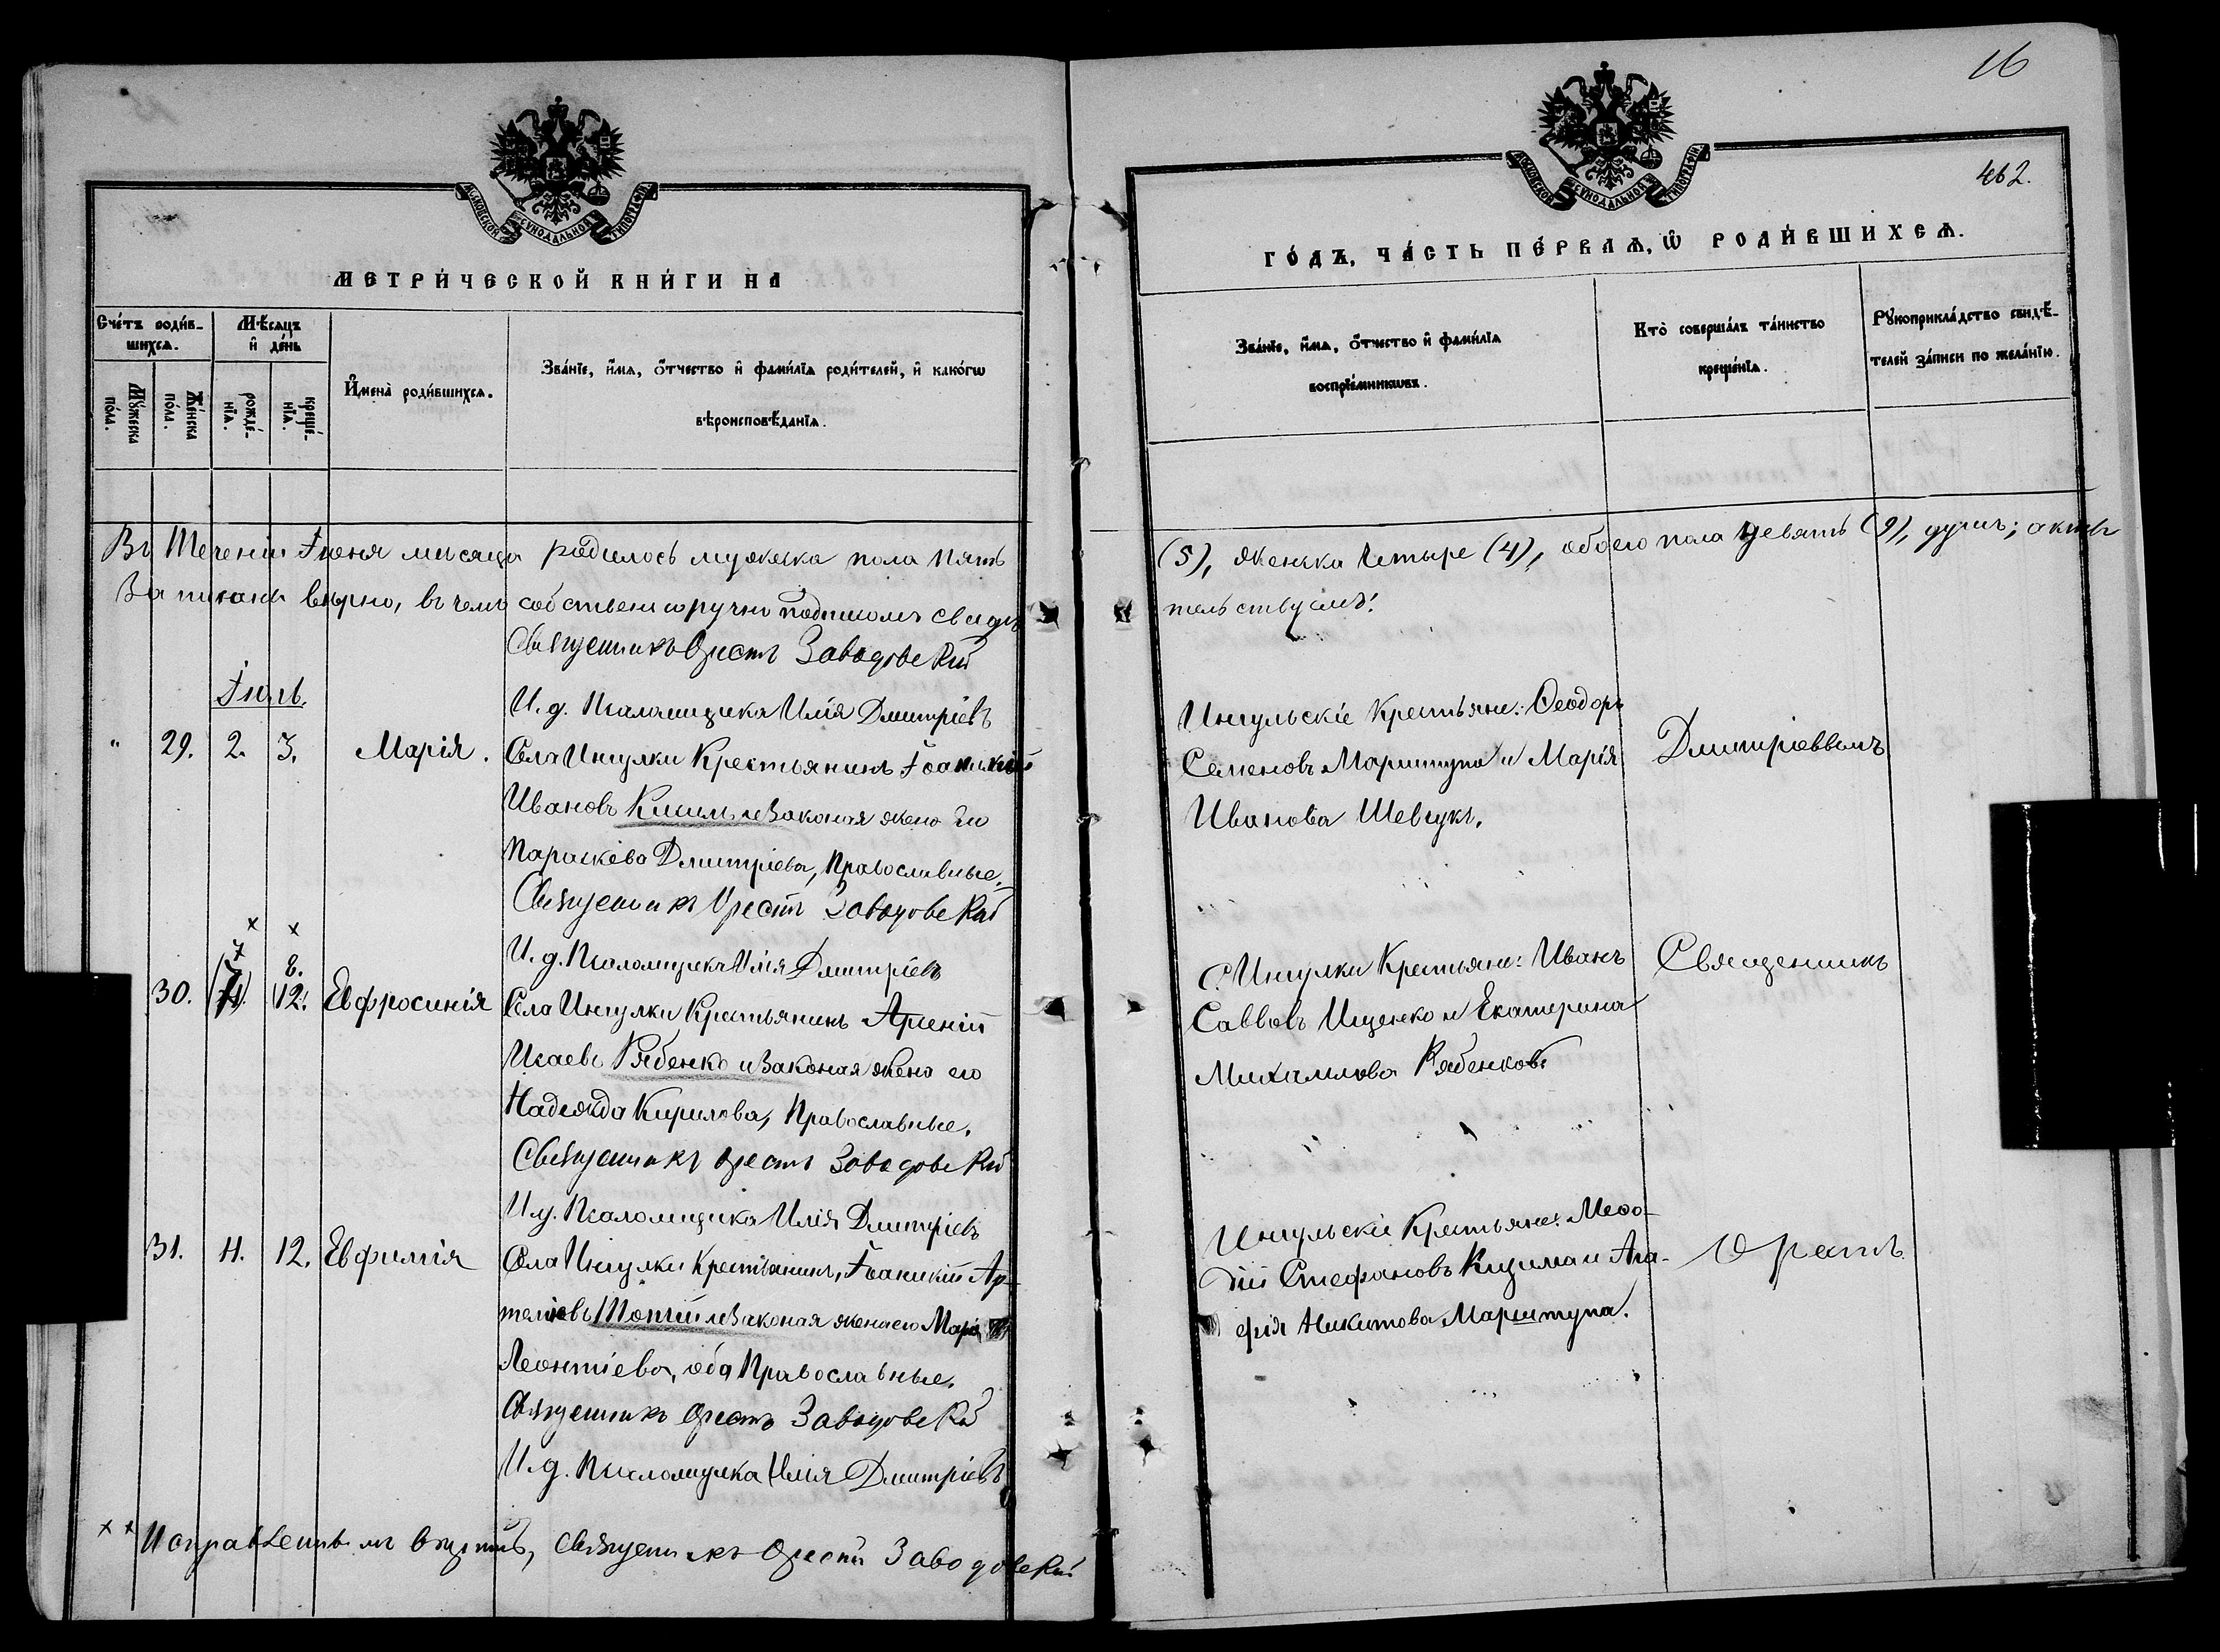 16
462.
МОСКОВСКОЙ СѴНОДАЛЬНОЙ ТИПОГРАФІИ
МЕТРИ́ЧЕСКОЙ КНИ́ГИ НА
МОСКОВСКОЙ СѴНОДАЛЬНОЙ ТИПОГРАФІИ
ГО́ДЪ, ЧА́СТЬ ПЕ́РВАѦ, Ѡ҆ РОДИ́ВШИХСѦ.
Сче́тъ роди́в-
шихсѧ.
Мꙋ́жеска
по́ла.
Же́нска
по́ла.
Мѣ́сѧцъ
и҆ де́нь
рожде́-
нїѧ.
креще́-
нїѧ.
И҆мена̀ роди́вшихсѧ.
Зва́нїе, и҆́мѧ, ѻ҆́тчество и҆ фами́лїѧ роди́телей, и҆ како́гѡ
вѣроисповѣ́данїѧ.
Зва́нїе, и҆́мѧ, ѻ҆́тчество и҆ фами́лїѧ
воспрїе́мникѡвъ.
Кто̀ соверша́лъ та́инство
креще́нїѧ.
Рꙋкоприкла́дство свидѣ́-
телей за́писи по жела́нїю.
Въ Теченіи Іюня мѣсяца родилось мужеска пола пять
(5), женска Четыре (4), обоего пола Девять (9), душъ; акты
Записаны вѣрно, въ чемъ собственноручно подписомъ свидѣ
тельствуемъ!
Священникъ Орестъ Заводовскій
И. д. Псаломщика Илія Дмитріевъ
Іюль.
" 29. 2. 3. Марія.
Села Ингулки Крестьянинъ Іоаникій
Ивановъ и Законая жена его
Параскева Дмитріева, Православные.
Священникъ Орестъ Заводовскій
И. д. Псаломщика Илія Дмитріевъ
Ингульскіе Крестьяне: Ѳеодоръ
Семеновъ Марштупа и Марія
Иванова Шевчукъ.
Дмитріевымъ
× ×
7 8.
30. 12. Евфросинія
Села Ингулки Крестьянинъ Арсеній
Исаевъ Рябенко и Законая жена его
Надежда Кирилова, Православные.
Священникъ Орестъ Заводовскій
И. д. Псаломщика Илія Дмитріевъ
С. Ингулки Крестьяне: Иванъ
Саввовъ Ищенко и Екатерина
Михаилова Рябенкова
Священникъ
31. 11. 12. Евфимія
Села Ингулки Крестьянинъ, Іоаникій Ар-
темовъ Топчій и Законая жена его Марія
Леонтіева, оба Православные.
Священникъ Орестъ Заводовскій
И. д. Псаломщика Илія Дмитріевъ
Ингульскіе Крестьяне: Меѳо-
дій Стефановъ Кизима и Ага-
фія Никитова Марштупа.
Орестъ
× × священникъ Орестъ Заводовскій